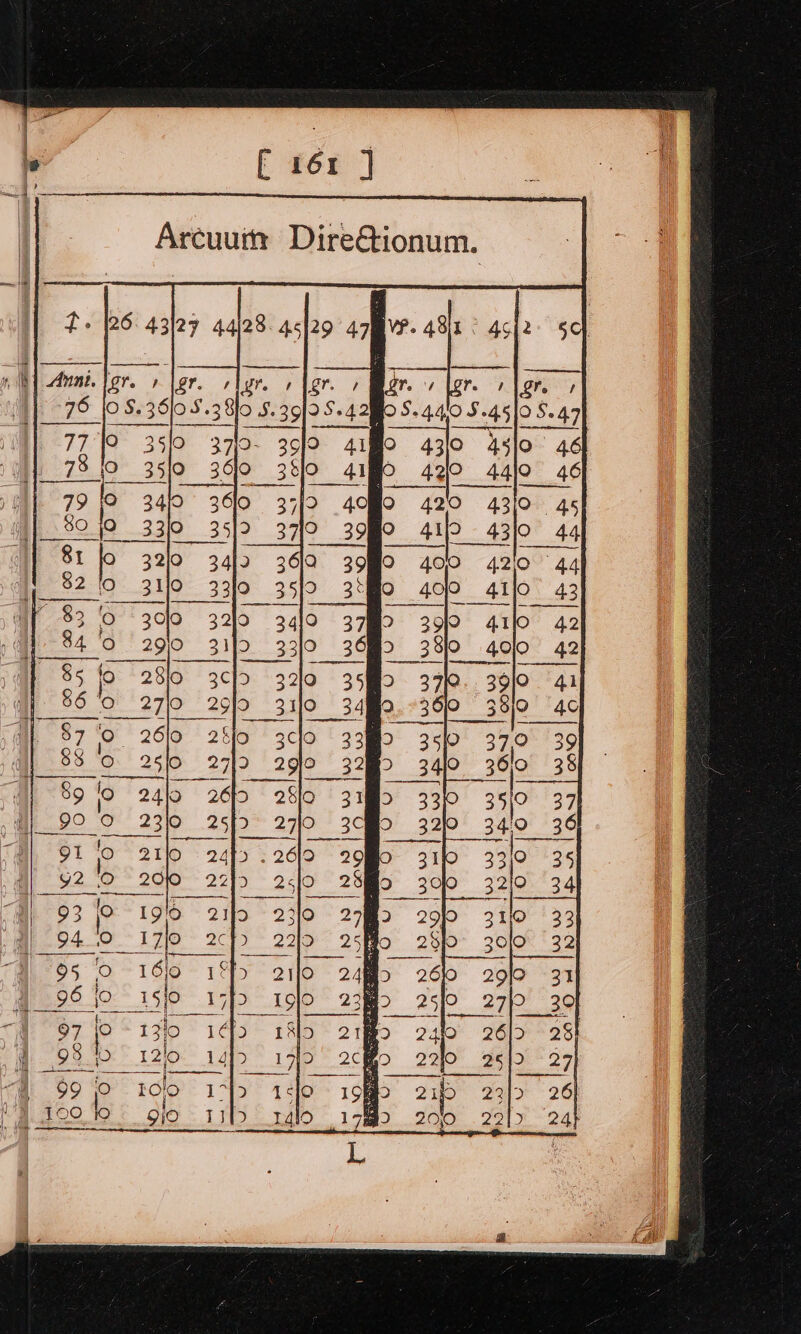 [ 161 ]
Arcuum Directionum.
26 43 27 44 28 45 29 47 48 1 45 2 50
Anni. gr. ′ gr. ′ gr. ′ gr. ′ gr. ′ gr. ′ gr. ′
76 0 S.36 0 S.38 0 S.39 0 S.42 0 S.44 0 S.45 0 S.47
77 0 35 0 37 0 39 0 41 0 43 0 45 0 46
78 0 35 0 36 0 38 0 41 0 42 0 44 0 46
79 0 34 0 36 0 37 0 40 0 42 0 43 0 45
80 0 33 0 35 0 37 0 39 0 41 0 43 0 44
81 0 32 0 34 0 36 0 39 0 40 0 42 0 44
82 0 31 0 33 0 35 0 38 0 40 0 41 0 43
83 0 30 0 32 0 34 0 37 0 39 0 41 0 42
84 0 29 0 31 0 33 0 36 0 38 0 40 0 42
85 0 28 0 30 0 32 0 35 0 37 0 39 0 41
86 0 27 0 29 0 31 0 34 0 36 0 38 0 40
87 0 26 0 28 0 30 0 33 0 35 0 37 0 39
88 0 25 0 27 0 29 0 32 0 34 0 36 0 38
89 0 24 0 26 0 28 0 31 0 33 0 35 0 37
90 0 23 0 25 0 27 0 30 0 32 0 34 0 36
91 0 21 0 24 0 26 0 29 0 31 0 33 0 35
92 0 20 0 22 0 25 0 28 0 30 0 32 0 34
93 0 19 0 21 0 23 0 27 0 29 0 31 0 33
94 0 17 0 20 0 22 0 25 0 28 0 30 0 32
95 0 16 0 18 0 21 0 24 0 26 0 29 0 31
96 0 15 0 17 0 19 0 23 0 25 0 27 0 30
97 0 13 0 16 0 18 0 21 0 24 0 26 0 28
98 0 12 0 14 0 17 0 20 0 22 0 25 0 27
99 0 10 0 13 0 15 0 19 0 21 0 23 0 26
100 0 9 0 11 0 14 0 17 0 20 0 22 0 24
L